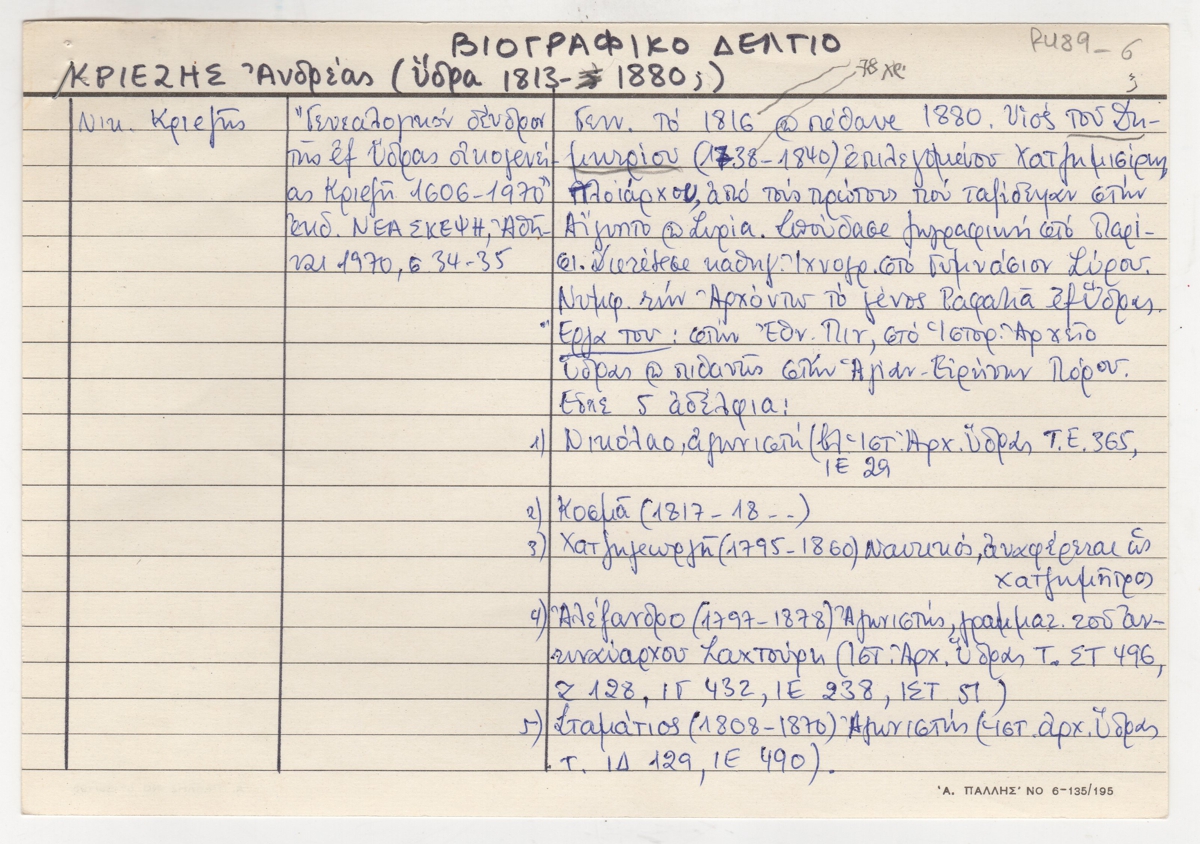 ΒΙΟΓΡΑΦΙΚΟ ΔΕΛΤΙΟ
RU89-6
3
ΚΡΙΕΖΗΣ Ἀνδρέας (Ὕδρα 1813- 1880;)
78 χρ.
Νικ. Κριεζῆς
"Γενεαλογικόν δένδρον
τῆς ἐξ Ὕδρας οἰκογενεί-
ας Κριεζῆ 1606-1970"
ἐκδ. ΝΕΑ ΣΚΕΨΗ, Ἀθῆ-
ναι 1970, σ 34-35
Γενν. τό 1816 @ πέθανε 1880. Υἱός τοῦ Δη-
μητρίου (1738-1840) ἐπιλεγομένου Χατζημισίρη,
Πλοιάρχου, ἀπό τούς πρώτους πού ταξίδεψαν στήν
Αἴγυπτο @ Συρία. Σπούδασε ζωγραφική στό Παρί-
σι. Διετέλεσε καθηγ. Ἰχνογρ. στό Γυμνάσιον Σύρου.
Νυμφ. τήν Ἀρχόντω τό γένος Ραφαλιᾶ ἐξ Ὕδρας.
"Εργα του: στήν Ἐθν. Πιν, στό Ἱστορ. Ἀρχεῖο
Ὕδρας @ πιθανῶς στήν Ἁγίαν-Εἰρήνην Πόρου.
Εἶχε 5 ἀδέλφια:
1) Νικόλαο, ἀγωνιστή (βλ. Ἱστ. Ἀρχ. Ὕδρας Τ.Ε. 365,
ΙΕ 29
2) Κοσμᾶ (1817-18--)
3) Χατζηγεωργῆ (1795-1860) Ναυτικός, ἀναφέρεται ὡς
χατζημῆτρος
4) Ἀλέξανδρο (1797-1878) Ἀγωνιστής, γραμματ. τοῦ ἀν-
τιναύαρχου Σαχτούρη (Ἱστ. Ἀρχ. Ὕδρας Τ. ΣΤ 496,
Ζ 128, ΙΓ 432, ΙΕ 238, ΙΣΤ 51)
5) Σταμάτιος (1808-1870) Ἀγωνιστής (Ἱστ. ἀρχ. Ὕδρας
τ. ΙΔ 129, ΙΕ 490).
'Α. ΠΑΛΛΗΣ' ΝΟ 6-135/195